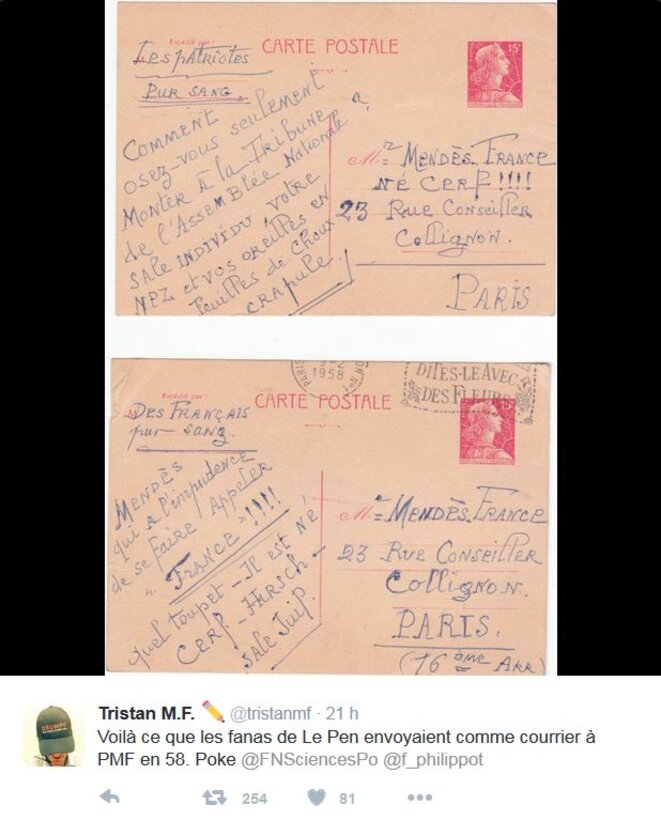 Expédié par :
CARTE POSTALE
15F
Les patriotes
pur sang
Comment
osez-vous seulement
monter à la Tribune
de l'Assemblée Nationale ?
sale individu votre
nez et vos oreilles en
feuilles de choux
crapule !
Mr Mendès France
né Cerf !!!!
23 Rue Conseiller
Collignon.
PARIS
Expédié par :
CARTE POSTALE
PARIS
1958
DITES-LE AVEC
DES FLEURS
Des Français
pur sang
Mendès
qui a l'impudence
de se faire appeler
"France" !!!!
quel toupet - Il est né
Cerf - Hirsch -
sale Juif.
Mr Mendès France
23 Rue Conseiller
Collignon.
PARIS.
(16ème Arr)
DRUMPF
Tristan M.F. ✏️ @tristanmf · 21 h
Voilà ce que les fanas de Le Pen envoyaient comme courrier à
PMF en 58. Poke @FNSciencesPo @f_philippot
254 81